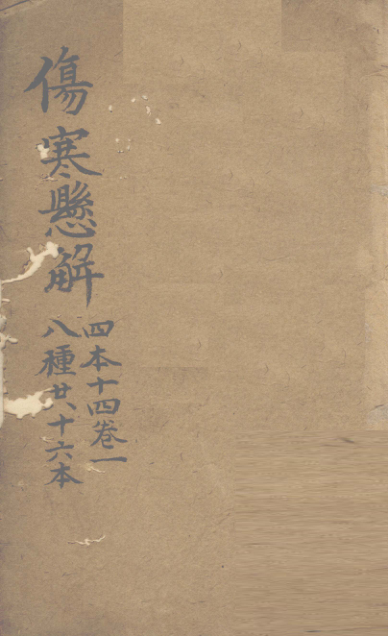 傷寒懸解
四本十四卷一
八種廿、十六本